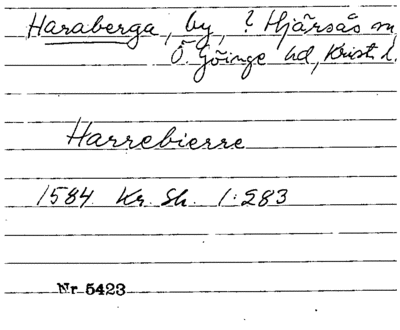 Haraberga, by, ? Hjärsås sn,
Ö. Göinge hd, Krist. l.
Harrebierre
1584 Kr. Sk. 1:283
Nr 5423